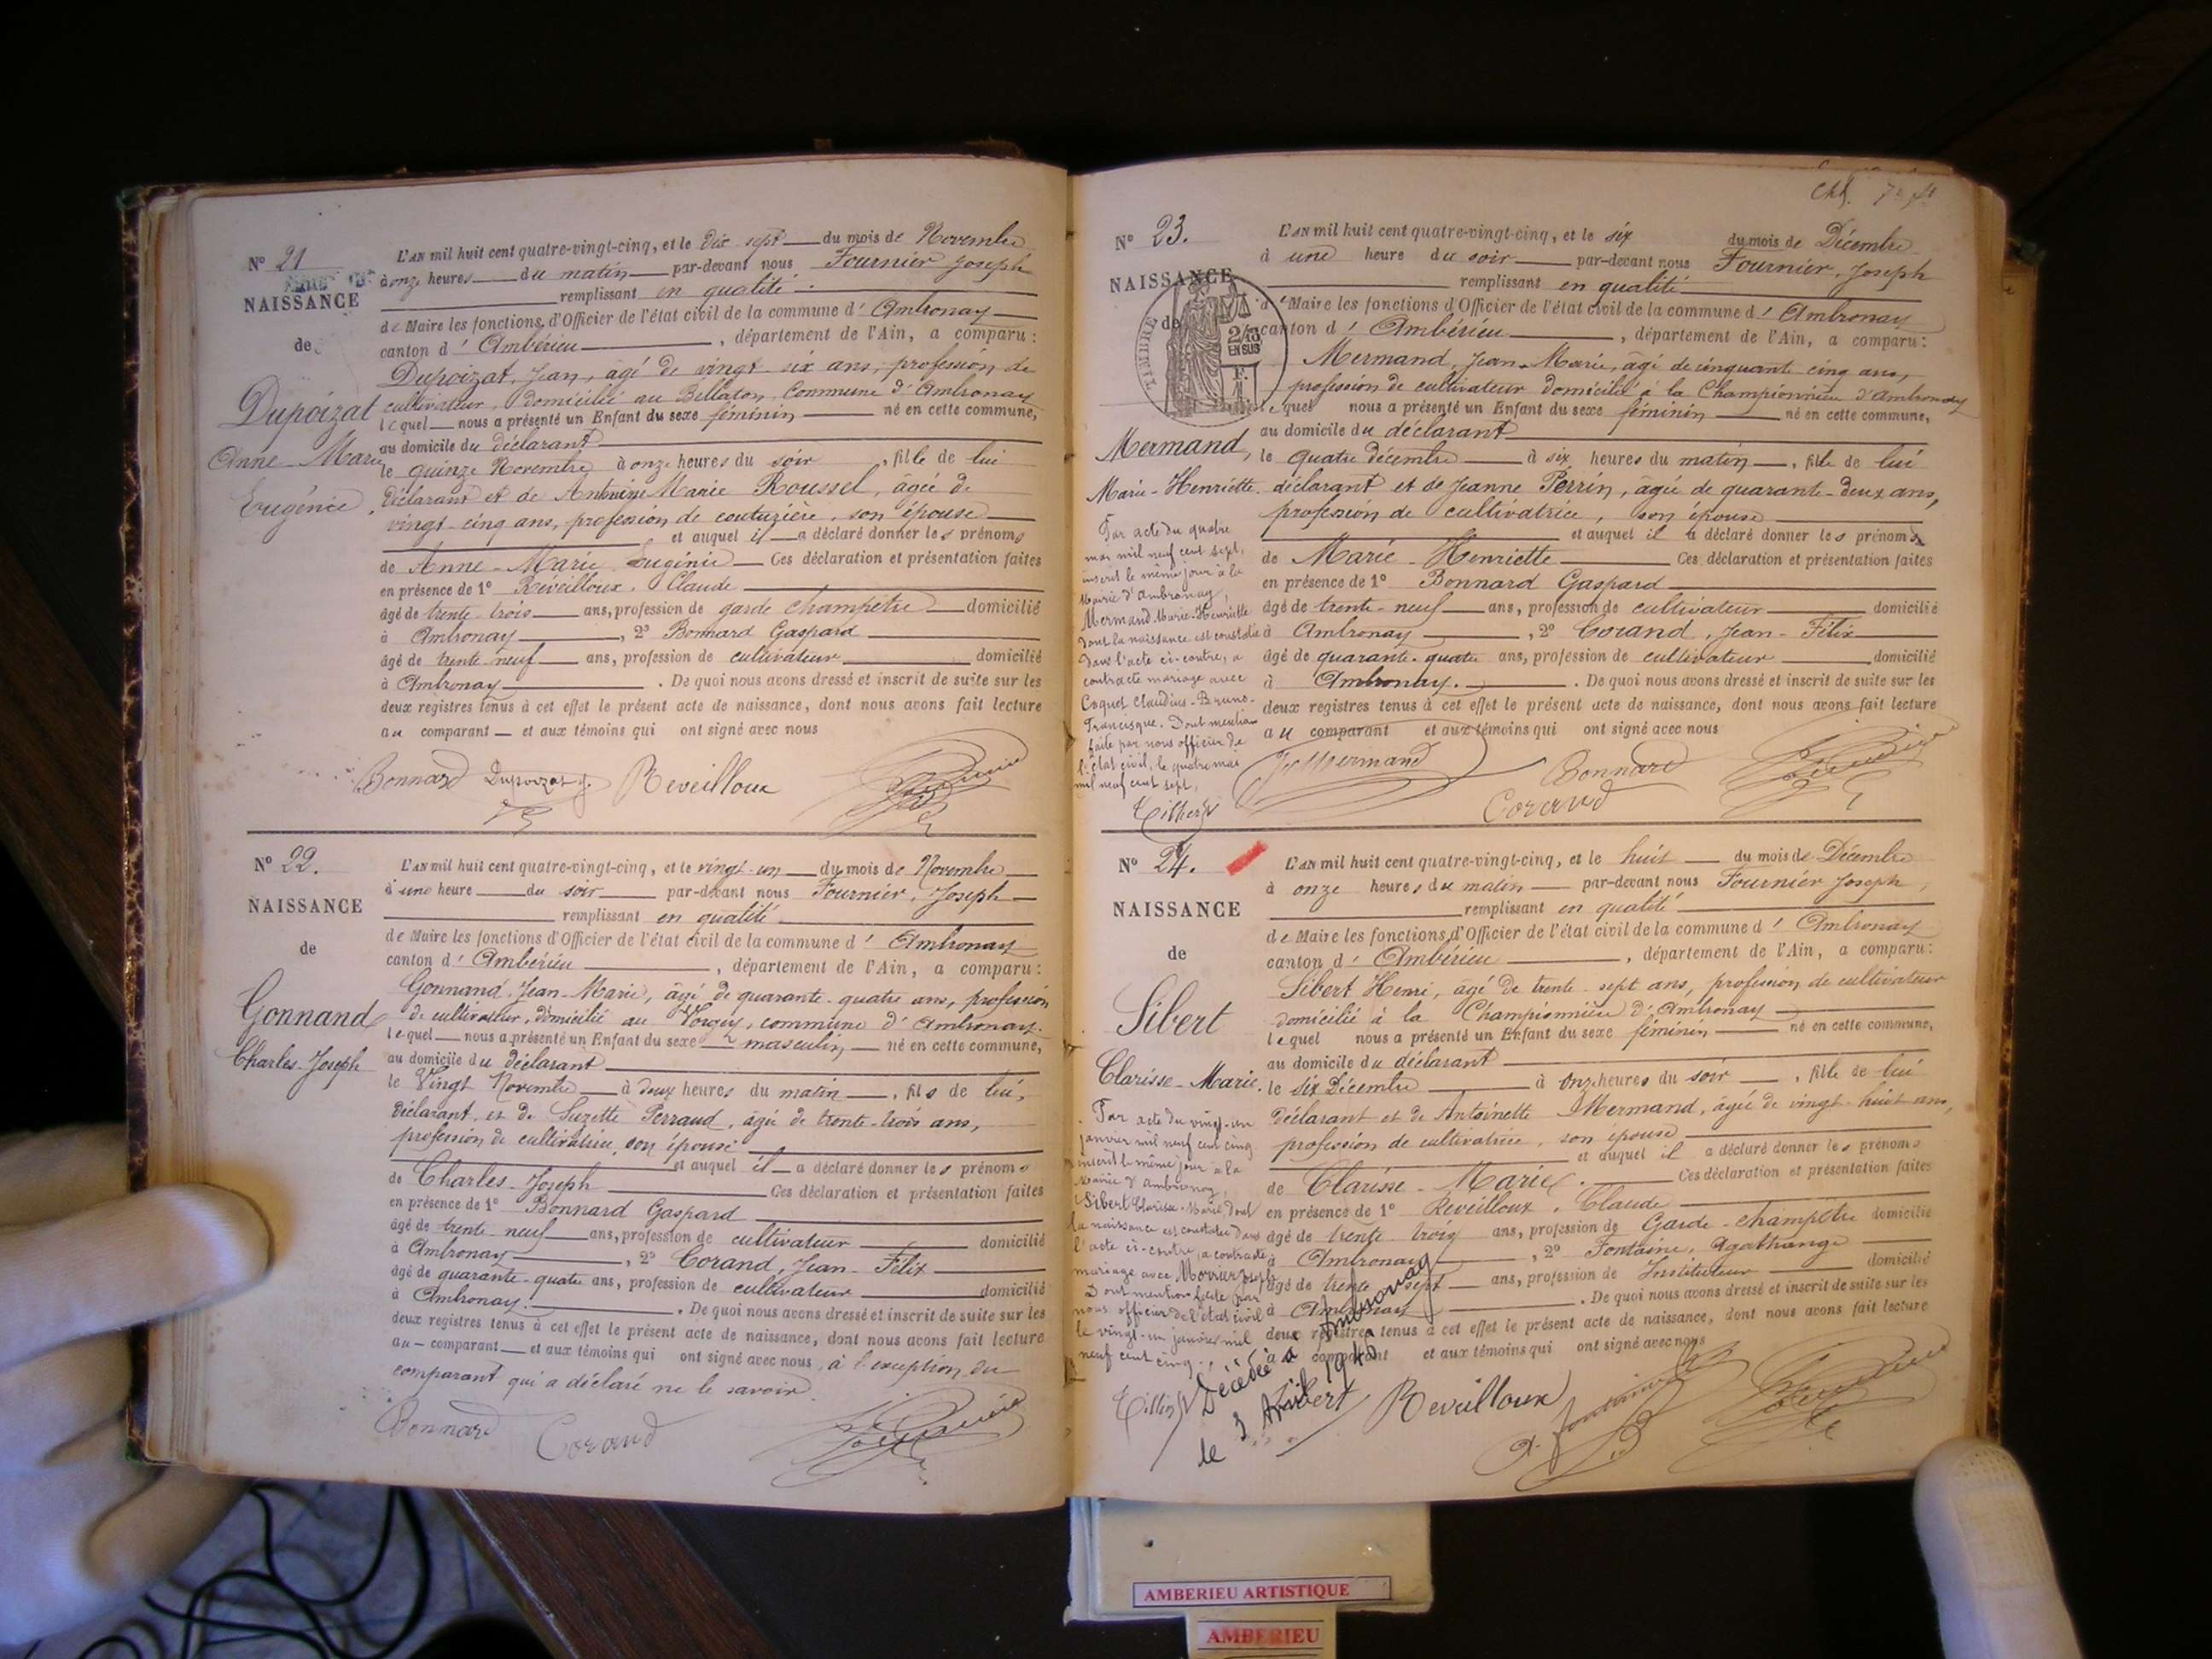 N° 21
NAISSANCE
de
Dupoizat
Anne-Marie
Eugénie
L'AN mil huit cent quatre-vingt-cinq, et le dix sept du mois de Novembre
à onze heures du matin par-devant nous Fournier Joseph
remplissant en qualité
de Maire les fonctions d'Officier de l'état civil de la commune d' Ambronay
canton d' Ambérieu, département de l'Ain, a comparu:
Dupoizat, Jean, agé de vingt-six ans, profession de
cultivateur, domicilié au Bellaton, Commune d'Ambronay
lequel nous a présenté un Enfant du sexe féminin né en cette commune,
au domicile du déclarant
le quinze Novembre à onze heures du soir, fille de lui
déclarant et de Antoinie Marie Roussel, agée de
vingt-cinq ans, profession de couturière, son épouse
et auquel il a déclaré donner les prénoms
de Anne-Marie Eugénie Ces déclaration et présentation faites
en présence de 1° Réveilloux, Claude
âgé de trente-trois ans, profession de garde champêtre domicilié
à Ambronay, 2° Bonnard Gaspard
âgé de trente-neuf ans, profession de cultivateur domicilié
à Ambronay. De quoi nous avons dressé et inscrit de suite sur les
deux registres tenus à cet effet le présent acte de naissance, dont nous avons fait lecture
au comparant et aux témoins qui ont signé avec nous
Bonnard Dupoizat j. Reveilloux
N° 22.
NAISSANCE
de
Gonnand
Charles-Joseph
L'AN mil huit cent quatre-vingt-cinq, et le vingt-un du mois de Novembre
à une heure du soir par-devant nous Fournier, Joseph
remplissant en qualité
de Maire les fonctions d'Officier de l'état civil de la commune d' Ambronay
canton d' Ambérieu, département de l'Ain, a comparu:
Gonnand, Jean-Marie, âgé de quarante-quatre ans, profession
de cultivateur, domicilié au Vorgey, commune d'Ambronay.
lequel nous a présenté un Enfant du sexe masculin né en cette commune,
au domicile du déclarant
le Vingt Novembre à deux heures du matin, fils de lui,
déclarant, et de Suzette Perraud, âgé de trente-trois ans,
profession de cultivatrice, son épouse
et auquel il a déclaré donner les prénoms
de Charles-Joseph Ces déclaration et présentation faites
en présence de 1° Bonnard Gaspard
âgé de trente-neuf ans, profession de cultivateur domicilié
à Ambronay, 2° Corand, Jean-Félix
âgé de quarante-quatre ans, profession de cultivateur domicilié
à Ambronay. De quoi nous avons dressé et inscrit de suite sur les
deux registres tenus à cet effet le présent acte de naissance, dont nous avons fait lecture
au comparant et aux témoins qui ont signé avec nous, à l'exception du
comparant qui a déclaré ne le savoir.
Bonnard Corand
N° 23.
NAISSANCE
de
TIMBRE
2/10
EN SUS
Mermand,
Marie-Henriette.
Par acte du quatre
mai mil neuf cent sept,
inscrit le même jour à la
Mairie d'Ambronay,
Mermand Marie-Henriette
dont la naissance est constatée
dans l'acte ci-contre, a
contracté mariage avec
Coquet Claudius-Bruno-
Francisque. Dont mention
faite par nous officier de
l'état civil, le quatre mai
mil neuf cent sept,
L'AN mil huit cent quatre-vingt-cinq, et le six du mois de Décembre
à une heure du soir par-devant nous Fournier, Joseph
remplissant en qualité
de Maire les fonctions d'Officier de l'état civil de la commune d' Ambronay
canton d' Ambérieu, département de l'Ain, a comparu:
Mermand, Jean-Marie, âgé de cinquante cinq ans,
profession de cultivateur domicilié à la Championnière d'Ambronay
lequel nous a présenté un Enfant du sexe féminin né en cette commune,
au domicile du déclarant
le Quatre décembre à six heures du matin, fille de lui
déclarant et de Jeanne Perrin, âgée de quarante-deux ans,
profession de cultivatrice, son épouse
et auquel il a déclaré donner les prénoms
de Marie-Henriette Ces déclaration et présentation faites
en présence de 1° Bonnard Gaspard
âgé de trente-neuf ans, profession de cultivateur domicilié
à Ambronay, 2° Corand, Jean-Félix
âgé de quarante-quatre ans, profession de cultivateur domicilié
à Ambronay. De quoi nous avons dressé et inscrit de suite sur les
deux registres tenus à cet effet le présent acte de naissance, dont nous avons fait lecture
au comparant et aux témoins qui ont signé avec nous
Mermand Bonnard
Corand
N° 24.
NAISSANCE
de
Sibert
Clarisse-Marie.
Par acte du vingt-un
janvier mil neuf cent cinq
inscrit le même jour à la
Mairie d'Ambronay,
Sibert Clarisse-Marie dont
la naissance est constatée dans
l'acte ci-contre, a contracté
mariage avec Morrier Joseph
Dont mention faite par
nous officier de l'état civil
le vingt-un janvier mil
neuf cent cinq.
L'AN mil huit cent quatre-vingt-cinq, et le huit du mois de Décembre
à onze heures du matin par-devant nous Fournier Joseph,
remplissant en qualité
de Maire les fonctions d'Officier de l'état civil de la commune d' Ambronay
canton d' Ambérieu, département de l'Ain, a comparu:
Sibert Henri, agé de trente-sept ans, profession de cultivateur
domicilié à la Championnière d'Ambronay
lequel nous a présenté un Enfant du sexe féminin né en cette commune,
au domicile du déclarant
le six Décembre à onze heures du soir, fille de lui
déclarant et de Antoinette Mermand, âgée de vingt-huit ans,
profession de cultivatrice, son épouse
et auquel il a déclaré donner les prénoms
de Clarisse-Marie. Ces déclaration et présentation faites
en présence de 1° Reveilloux, Claude
âgé de trente-trois ans, profession de Garde-champêtre domicilié
à Ambronay, 2° Fontaine, Agathange
âgé de trente-sept ans, profession de Instituteur domicilié
à Ambronay. De quoi nous avons dressé et inscrit de suite sur les
deux registres tenus à cet effet le présent acte de naissance, dont nous avons fait lecture
au comparant et aux témoins qui ont signé avec nous
Décédée à Ambronay
le 3
Sibert Reveilloux
AMBERIEU ARTISTIQUE
AMBERIEU